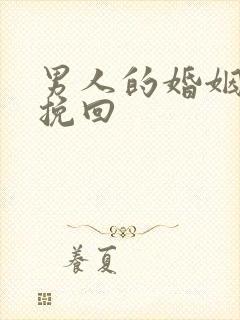 男人的婚姻
挽回
养夏